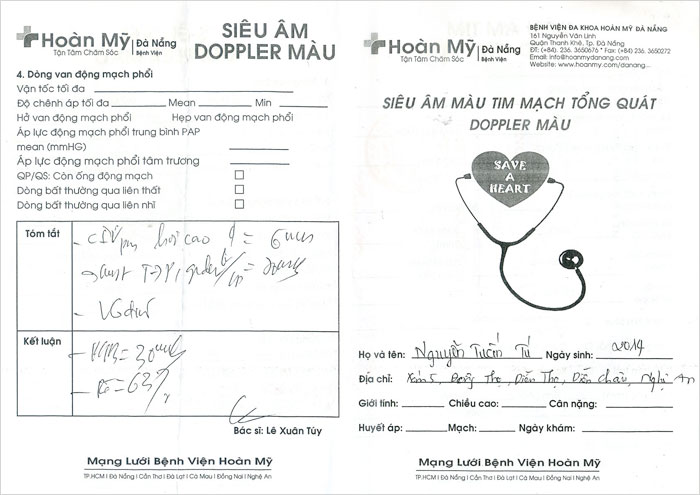 Hoàn Mỹ | Đà Nẵng
Bệnh Viện
Tận Tâm Chăm Sóc
SIÊU ÂM
DOPPLER MÀU
4. Dòng van động mạch phổi
Vận tốc tối đa
Độ chênh áp tối đa Mean Min
Hở van động mạch phổi Hẹp van động mạch phổi
Áp lực động mạch phổi trung bình PAP
mean (mmHG)
Áp lực động mạch phổi tâm trương
QP/QS: Còn ống động mạch
Dòng bất thường qua liên thất
Dòng bất thường qua liên nhĩ
Tóm tắt
Kết luận
Bác sĩ: Lê Xuân Túy
Mạng Lưới Bệnh Viện Hoàn Mỹ
TP.HCM I Đà Nẵng I Cần Thơ I Đà Lạt I Cà Mau I Đồng Nai I Nghệ An
Hoàn Mỹ | Đà Nẵng
Bệnh Viện
Tận Tâm Chăm Sóc
BỆNH VIỆN ĐA KHOA HOÀN MỸ ĐÀ NẴNG
161 Nguyễn Văn Linh
Quận Thanh Khê, Tp. Đà Nẵng
ĐT: (+84) 236. 3650676 * Fax: (+84) 236. 3650272
Email: info@hoanmydanang.com
Website: www.hoanmy.com/danang...
SIÊU ÂM MÀU TIM MẠCH TỔNG QUÁT
DOPPLER MÀU
SAVE
A
HEART
Họ và tên: Nguyễn Tuấn Tú Ngày sinh: 2014
Địa chỉ: Xóm 5, Thọ, Diễn Thọ, Diễn Châu, Nghệ An
Giới tính: Chiều cao: Cân nặng:
Huyết áp: Mạch: Ngày khám:
Mạng Lưới Bệnh Viện Hoàn Mỹ
TP.HCM I Đà Nẵng I Cần Thơ I Đà Lạt I Cà Mau I Đồng Nai I Nghệ An